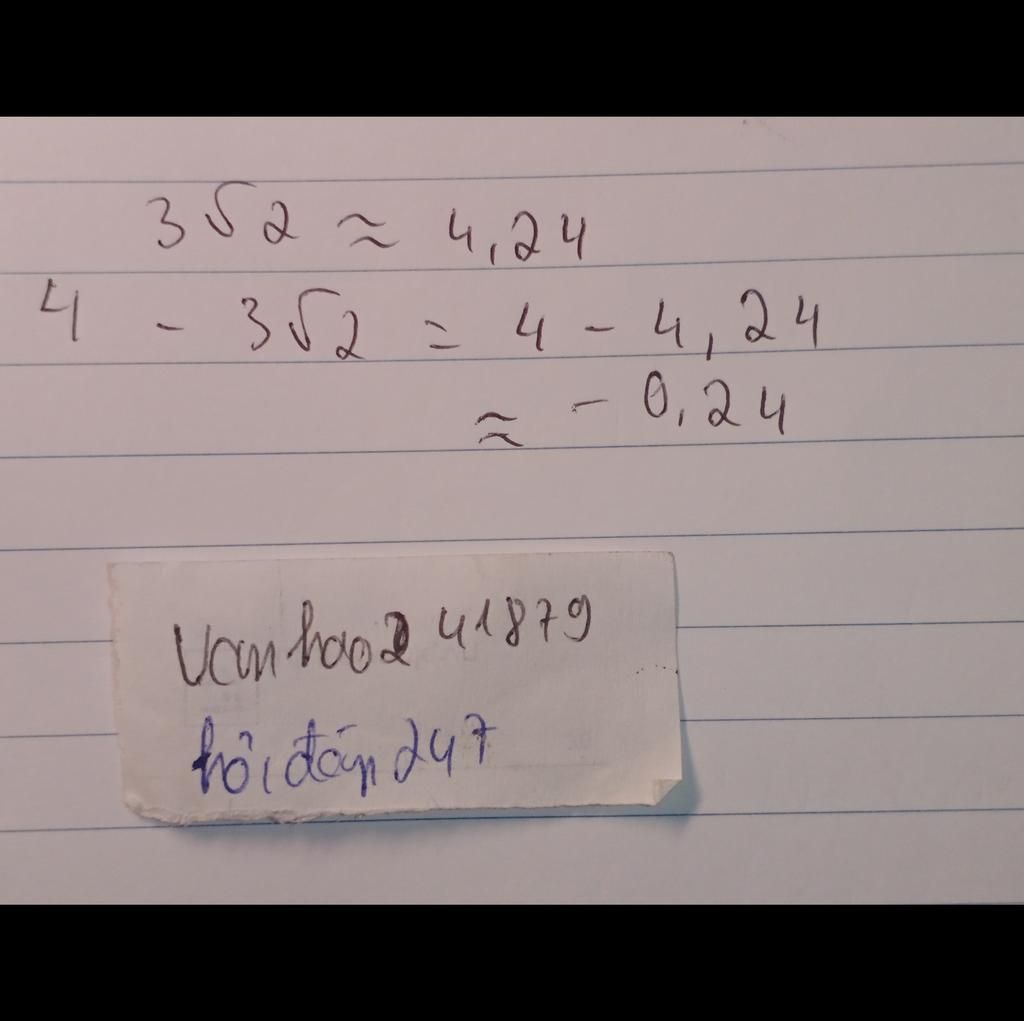 3√2 ≈ 4,24
4 - 3√2 = 4 - 4,24
≈ - 0,24
vanhao241879
hỏi đáp 247